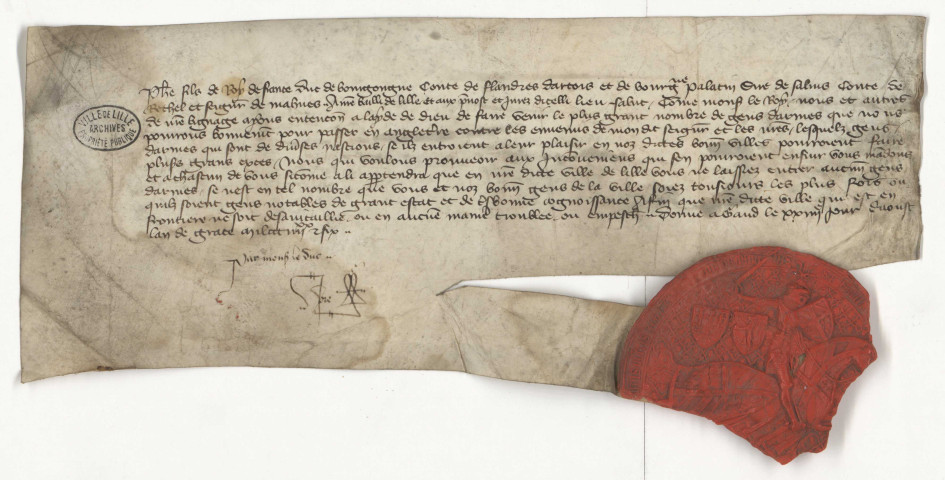 Phe filz de Roy de france Duc de bourgongne Conte de flandres dartois et de bourgne palatin Sire de salins Conte de
Rethel et seignr de malines A nre bailli de lille et aux prevost et Jurez dicelli lieu salut Come mons le Roy nous et autres
de nre lignage ayons entencon a layde de dieu de faire venir le plus grant nombre de gens darmes que no us
pourrons bonnemt pour passer en angleterre contre les ennemis de mondit seignr et les nres lesquelz gens
darmes qui sont de diverses nacions se ilz entroient a leur plaisir en noz dictes bonnes villes pourroient faire
pluseurs grans exces Nous qui voulons pourveoir aux Inconveniens qui sen pourroient ensuir vous mandons
et a chascun de vous sicome a li appartendra que en nre dicte ville de lille vous ne laissiez entrer aucuns gens
darmes se nest en tel nombre que vous et noz bonnes gens de la ville soiez tousiours les plus fors ou
quilz soient gens notables de grant estat et de bonne cognoissance Afin que nre dicte ville qui est en
frontiere ne soit desavitaillie ou en aucune maniere troublee ou empesch Donne a Gand le xxiiii Jour daoust
lan de grace mil CCC iiiixx & six
Par mons le duc
VILLE DE LILLE
ARCHIVES
PROPRIÉTÉ PUBLIQUE